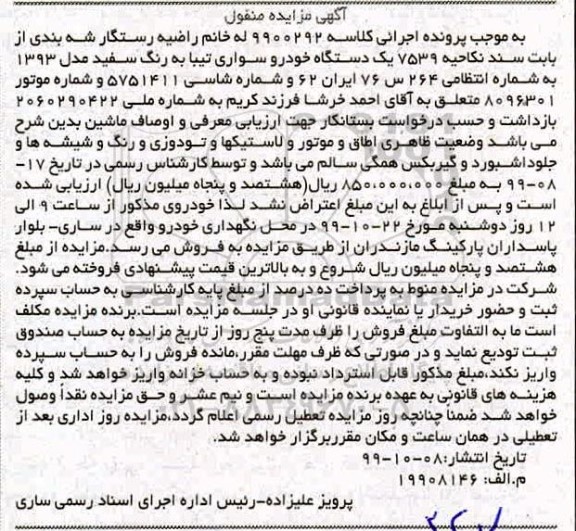 آگهی مزایده منقول
به موجب پرونده اجرائی کلاسه ۹۹۰۰۲۹۲ له خانم راضیه رستگار شه بندی از
بابت سند نکاحیه ۷۵۳۹ یک دستگاه خودرو سواری تیبا به رنگ سفید مدل ۱۳۹۳
به شماره انتظامی ۲۶۴ س ۷۶ ایران ۶۲ و شماره شاسی ۵۷۵۱۴۱۱ و شماره موتور
۸۰۹۶۳۰۱ متعلق به آقای احمد خرشا فرزند کریم به شماره ملی ۲۰۶۰۲۹۰۴۲۲
بازداشت و حسب درخواست بستانکار جهت ارزیابی معرفی و اوصاف ماشین بدین شرح
می باشد وضعیت ظاهری اطاق و موتور و لاستیکها و تودوزی و رنگ و شیشه ها و
جلوداشبورد و گیربکس همگی سالم می باشد و توسط کارشناس رسمی در تاریخ ۱۷-
۰۸-۹۹ به مبلغ ۸۵۰،۰۰۰،۰۰۰ ریال(هشتصد و پنجاه میلیون ریال) ارزیابی شده
است و پس از ابلاغ به این مبلغ اعتراض نشد لذا خودروی مذکور از ساعت ۹ الی
۱۲ روز دوشنبه مورخ ۲۲-۱۰-۹۹ در محل نگهداری خودرو واقع در ساری- بلوار
پاسداران پارکینگ مازندران از طریق مزایده به فروش می رسد.مزایده از مبلغ
هشتصد و پنجاه میلیون ریال شروع و به بالاترین قیمت پیشنهادی فروخته می شود.
شرکت در مزایده منوط به پرداخت ده درصد از مبلغ پایه کارشناسی به حساب سپرده
ثبت و حضور خریدار یا نماینده قانونی او در جلسه مزایده است.برنده مزایده مکلف
است ما به التفاوت مبلغ فروش را ظرف مدت پنج روز از تاریخ مزایده به حساب صندوق
ثبت تودیع نماید و در صورتی که ظرف مهلت مقرر،مانده فروش را به حساب سپرده
واریز نکند،مبلغ مذکور قابل استرداد نبوده و به حساب خزانه واریز خواهد شد و کلیه
هزینه های قانونی به عهده برنده مزایده است و نیم عشر و حق مزایده نقداً وصول
خواهد شد ضمناً چنانچه روز مزایده تعطیل رسمی اعلام گردد،مزایده روز اداری بعد از
تعطیلی در همان ساعت و مکان مقرربرگزار خواهد شد.
تاریخ انتشار:۰۸-۱۰-۹۹
م.الف: ۱۹۹۰۸۱۴۶
پرویز علیزاده-رئیس اداره اجرای اسناد رسمی ساری
ParsNamadData